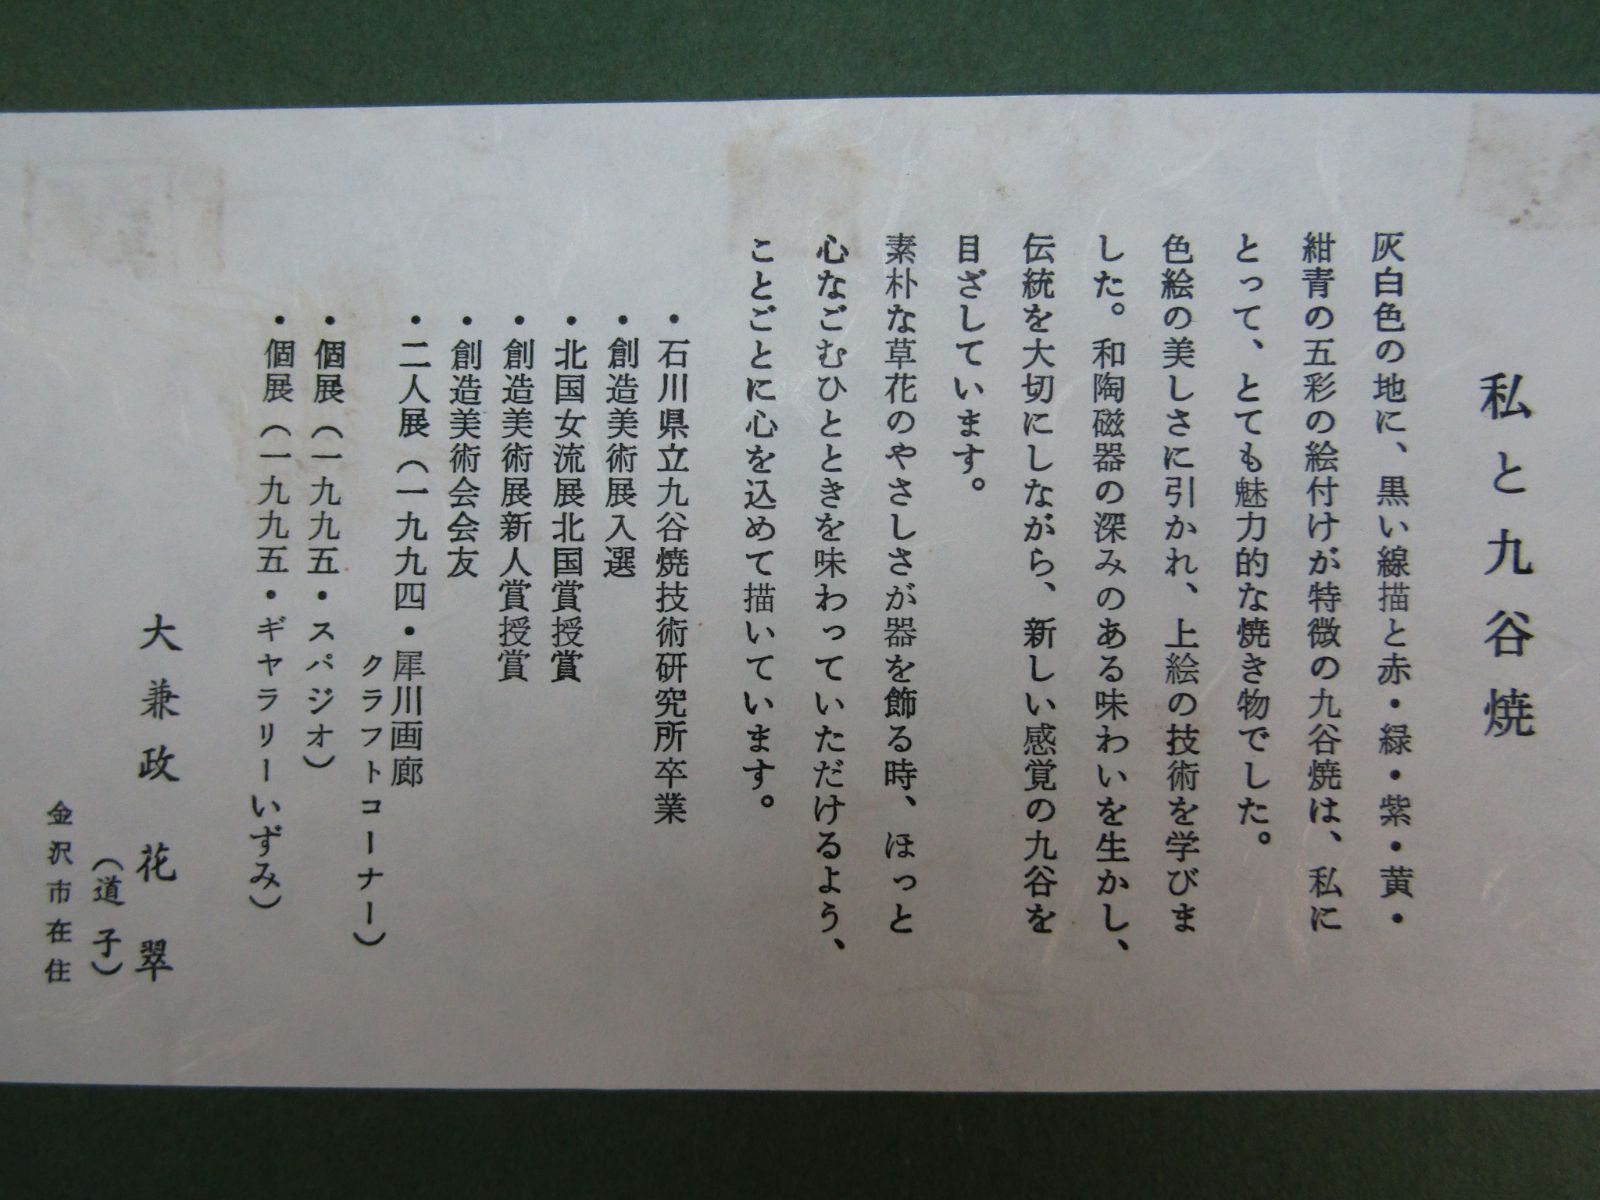 私と九谷焼
灰白色の地に、黒い線描と赤・緑・紫・黄・
紺青の五彩の絵付けが特微の九谷焼は、私に
とって、とても魅力的な焼き物でした。
色絵の美しさに引かれ、上絵の技術を学びま
した。和陶磁器の深みのある味わいを生かし、
伝統を大切にしながら、新しい感覚の九谷を
目ざしています。
素朴な草花のやさしさが器を飾る時、ほっと
心なごむひとときを味わっていただけるよう、
ことごとに心を込めて描いています。
・石川県立九谷焼技術研究所卒業
・創造美術展入選
・北国女流展北国賞授賞
・創造美術展新人賞授賞
・創造美術会会友
・二人展（一九九四・犀川画廊
クラフトコーナー）
・個展（一九九五・スパジオ）
・個展（一九九五・ギャラリーいずみ）
大兼政 花翠
（道子）
金沢市在住